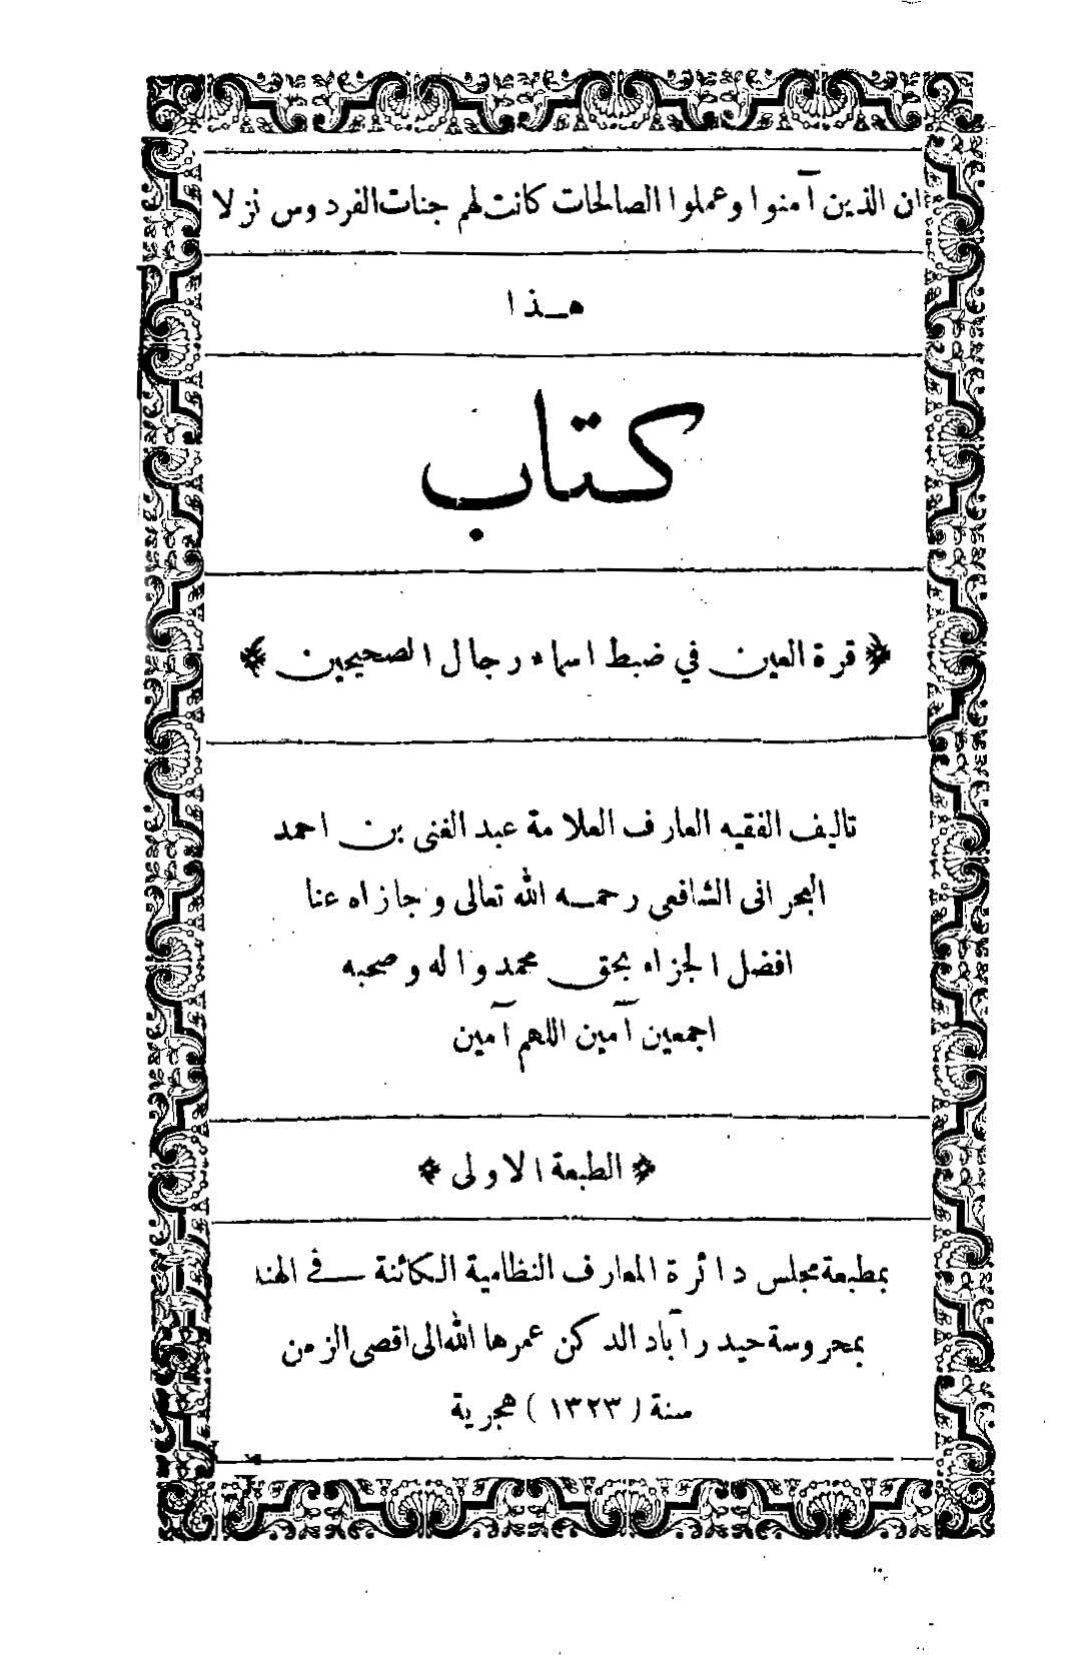 ان الذين آمنوا وعملوا الصالحات كانت لهم جنات الفردوس نزلا
هـذا
كتاب
﴿ قرة العين في ضبط اسماء رجال الصحيحين ﴾
تاليف الفقيه العارف العلامة عبد الغنى بن احمد
البحرانى الشافعى رحمه الله تعالى وجازاه عنا
افضل الجزاء بحق محمد واله وصحبه
اجمعين آمين اللهم آمين
﴿ الطبعة الاولى ﴾
بمطبعة مجلس دائرة المعارف النظامية الكائنة فى الهند
بمحروسة حيدر آباد الدكن عمرها الله الى اقصى الزمن
سنة (١٣٢٣) هجرية